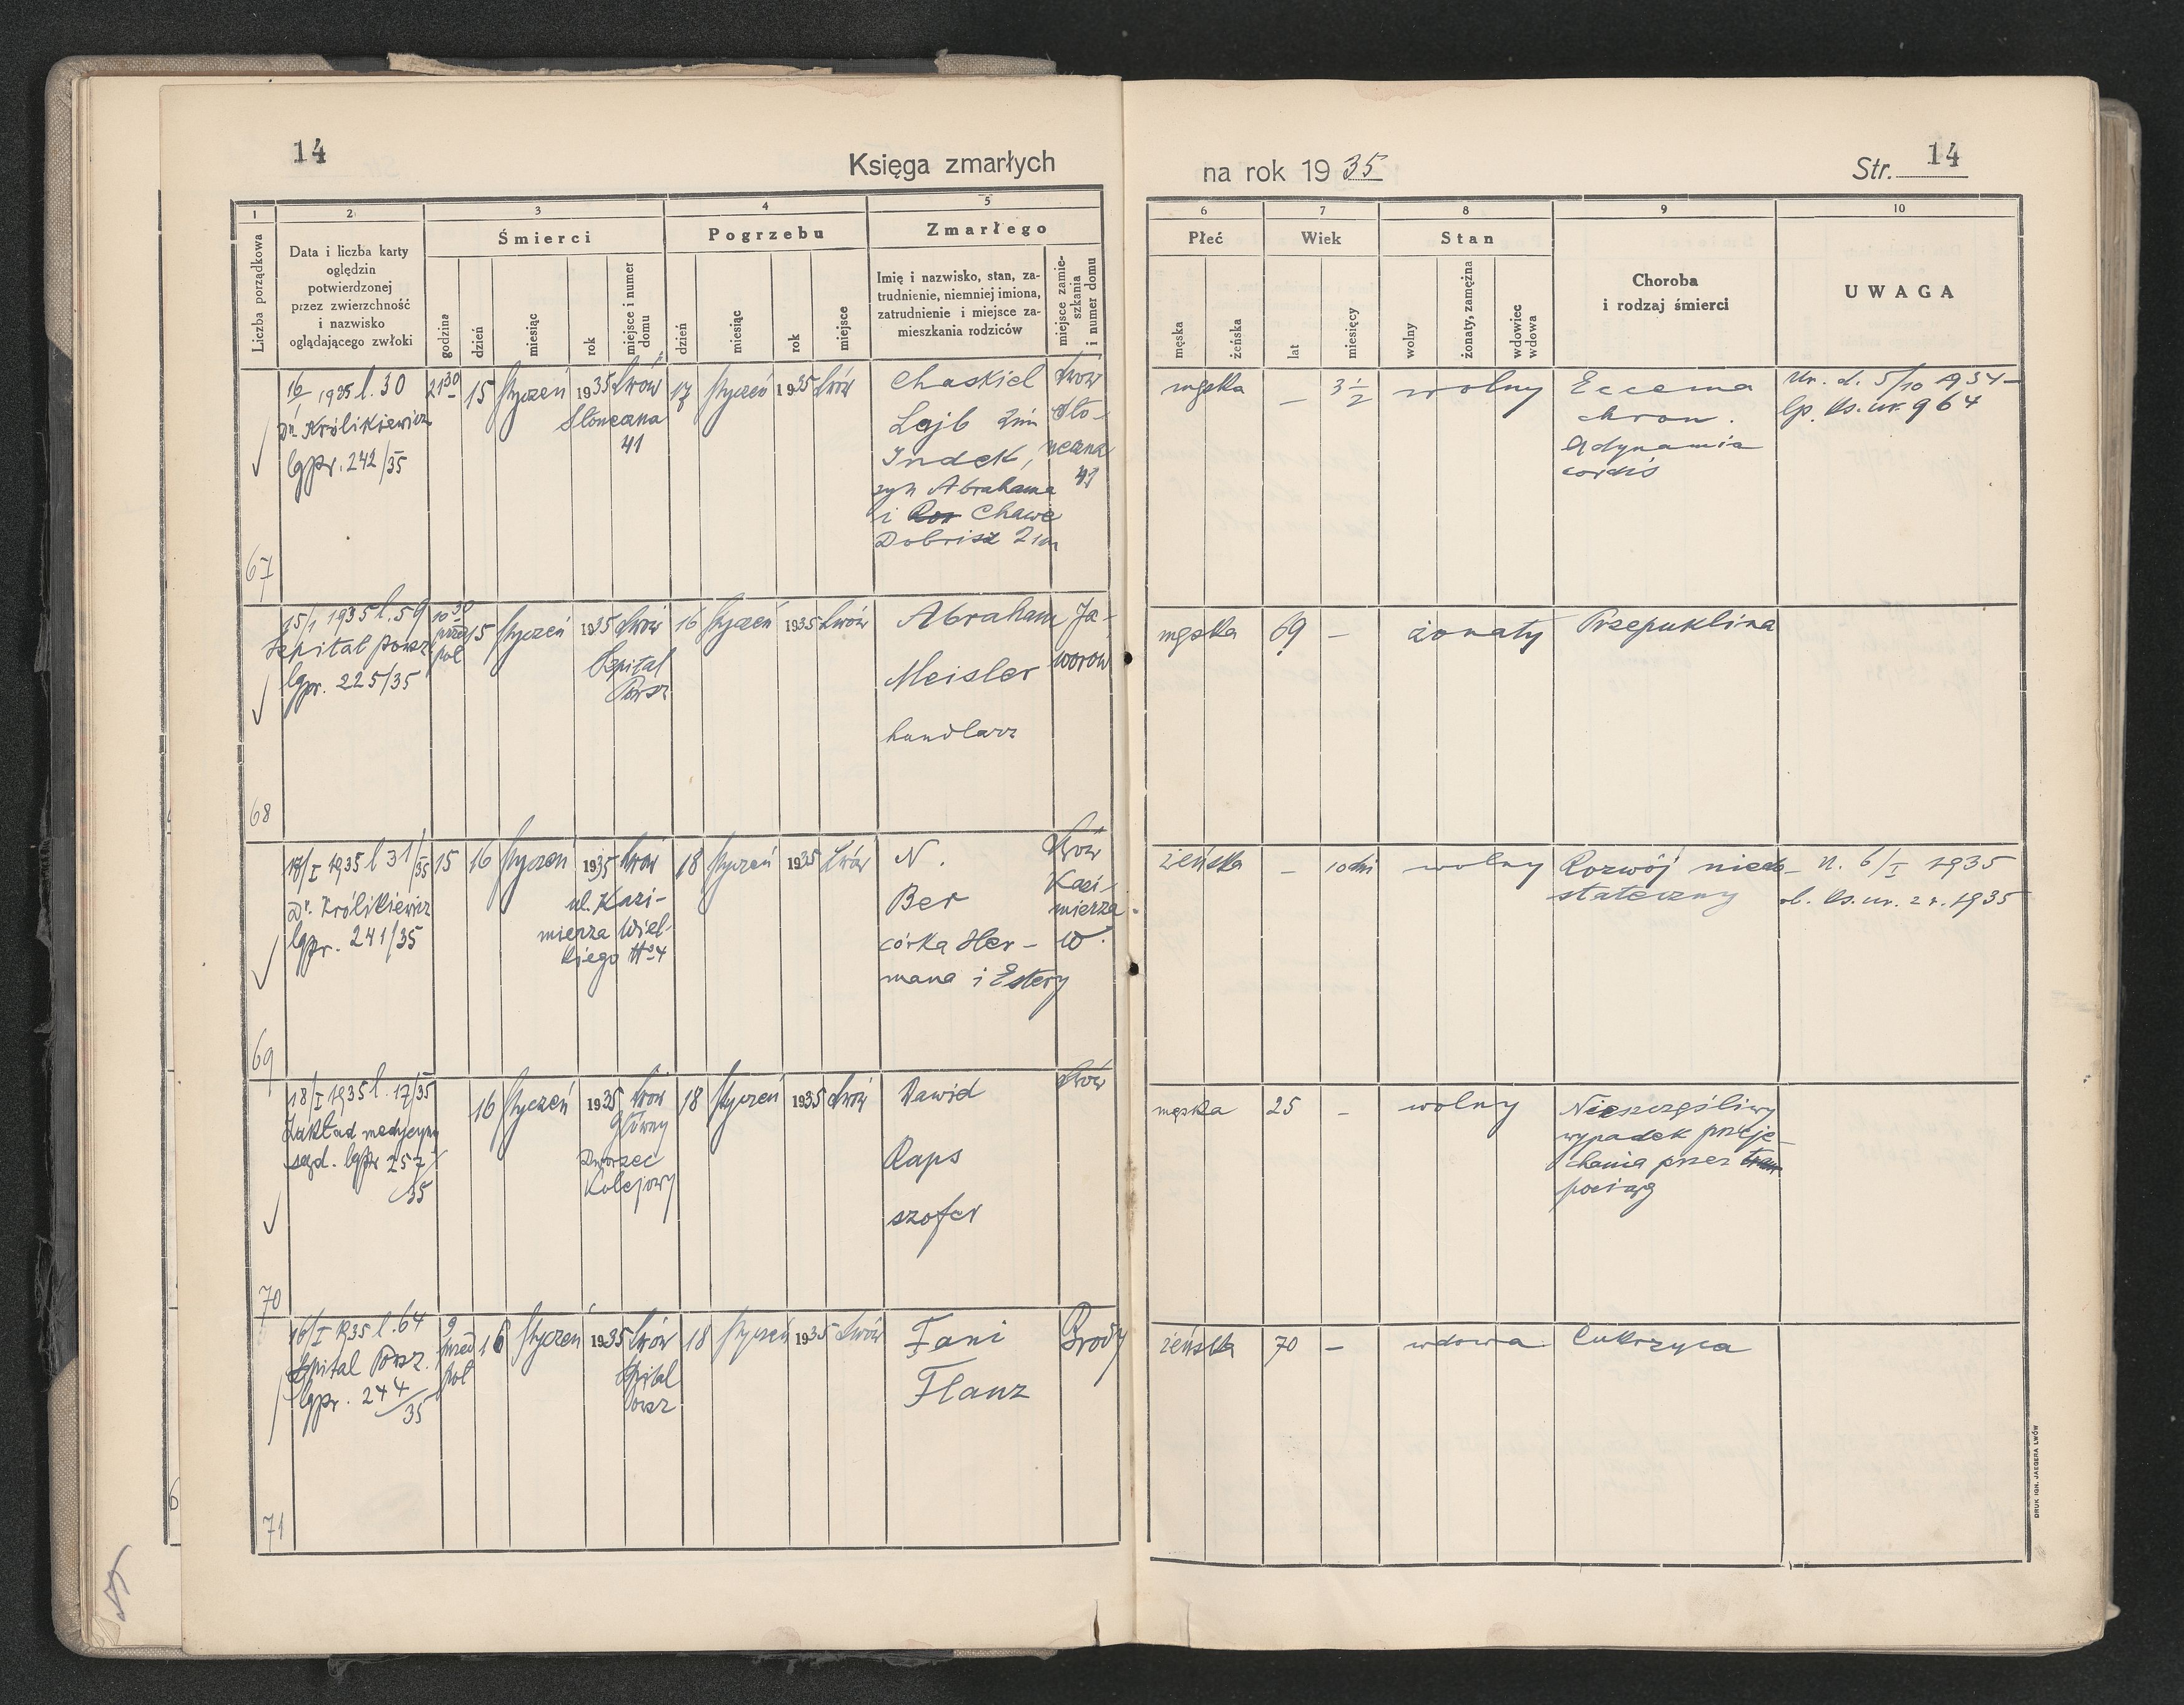 14
Księga zmarłych
na rok 1935
Str. 14
1
2
3
4
5
6
7
8
9
10
Liczba porządkowa
Data i liczba karty
oględzin
potwierdzonej
przez zwierzchność
i nazwisko
oglądającego zwłoki
Śmierci
godzina
dzień
miesiąc
rok
miejsce i numer
domu
Pogrzebu
dzień
miesiąc
rok
miejsce
Zmarłego
Imię i nazwisko, stan, za-
trudnienie, niemniej imiona,
zatrudnienie i miejsce za-
mieszkania rodziców
miejsce zamie-
szkania
i numer domu
Płeć
męska
żeńska
Wiek
lat
miesięcy
Stan
wolny
żonaty, zamężna
wdowiec
wdowa
Choroba
i rodzaj śmierci
UWAGA
67
16/1 1935 l. 30
Dr. Królikiewicz
lgpr. 242/35
21 30
15
styczeń
1935
Lwów
Słoneczna
41
17
styczeń
1935
Lwów
Chaskiel
Lajb 2im
Indek,
syn Abrahama
i Chawe
Dobrisz 2im
Lwów
Sło-
neczna
41
męska
–
3 1/2
wolny
Eccema
chron.
Adynamia
cordis
Ur. d. 5/10 1934
lp. ks. ur. 964
68
15/1 1935 l. 59
Szpital Powsz
lgpr. 225/35
10 30
przed
poł
15
styczeń
1935
Lwów
Szpital
Powsz
16
styczeń
1935
Lwów
Abraham
Meisler
handlarz
Ja-
worów
męska
69
–
żonaty
Przepuklina
69
18/I 1935 l 31/35
Dr. Królikiewicz
lgpr. 241/35
15
16
styczeń
1935
Lwów
ul. Kazi-
mierza Wiel-
kiego No 4
18
styczeń
1935
Lwów
N.
Ber
córka Her-
mana i Estery
Lwów
Kazi-
mierza
W.
żeńska
–
10 dni
wolny
Rozwój niedo-
stateczny
U. 6/I 1935
l. ks. ur. 2 r. 1935
70
18/I 1935 l. 17/35
Zakład medycyny
sąd. lgpr 257/35
16
styczeń
1935
Lwów
Główny
Dworzec
Kolejowy
18
styczeń
1935
Lwów
Dawid
Raps
szofer
Lwów
męska
25
–
wolny
Nieszczęśliwy
wypadek przeje-
chania przez
pociąg
71
16/I 1935 l. 64
Szpital Powsz.
lgpr. 244/35
9
przed
poł
16
styczeń
1935
Lwów
Szpital
Powsz
18
styczeń
1935
Lwów
Fani
Flanz
Brody
żeńska
70
–
wdowa
Cukrzyca
DRUK IGN. JAEGERA LWÓW